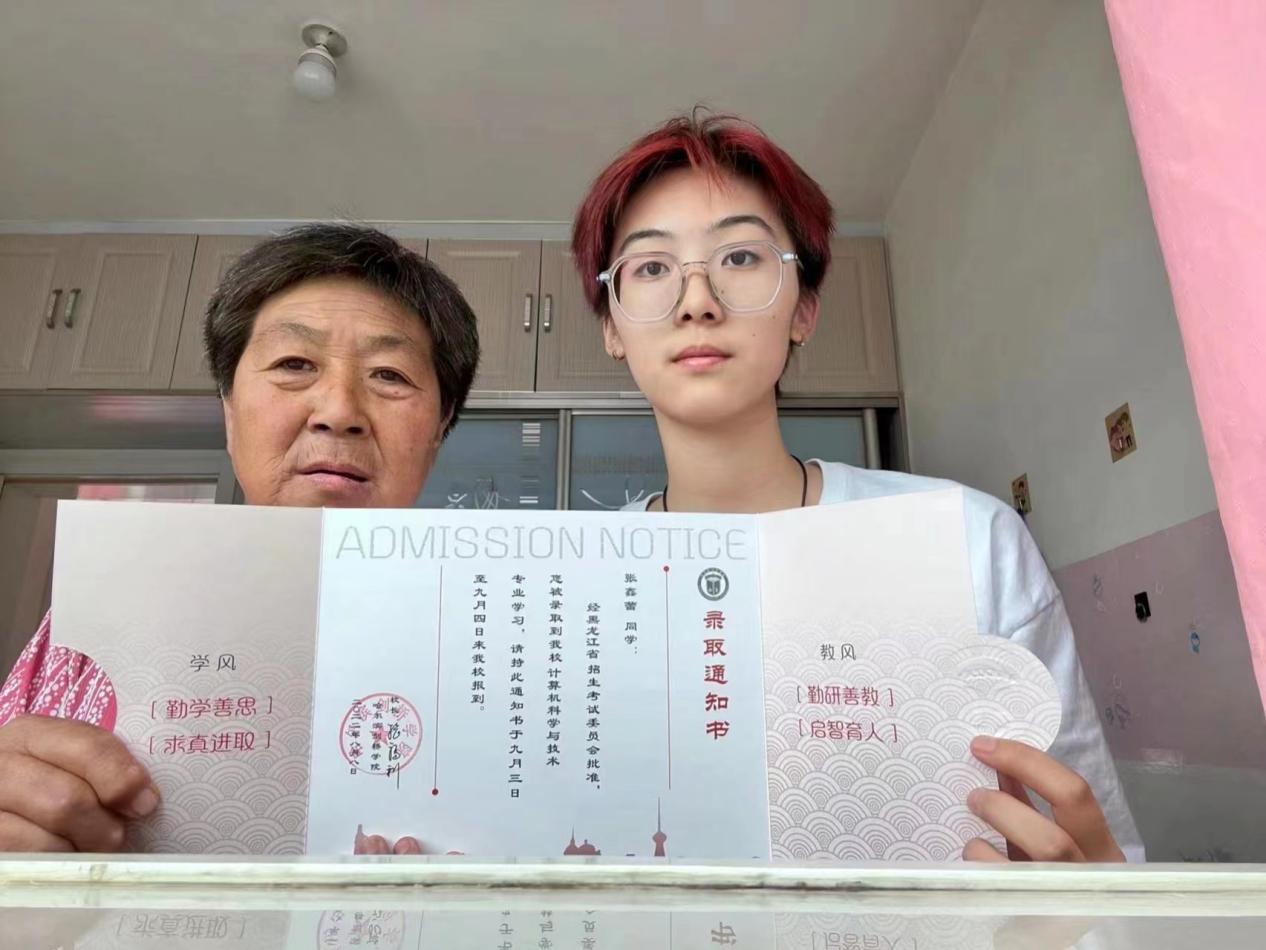 ADMISSION NOTICE
录取通知书
张鑫蕾 同学：
经黑龙江省招生考试委员会批准，
您被录取到我校计算机科学与技术
专业学习，请持此通知书于九月三日
至九月四日来我校报到。
校长
哈尔滨剑桥学院
学风
[ 勤学善思 ]
[ 求真进取 ]
教风
[ 勤研善教 ]
[ 启智育人 ]